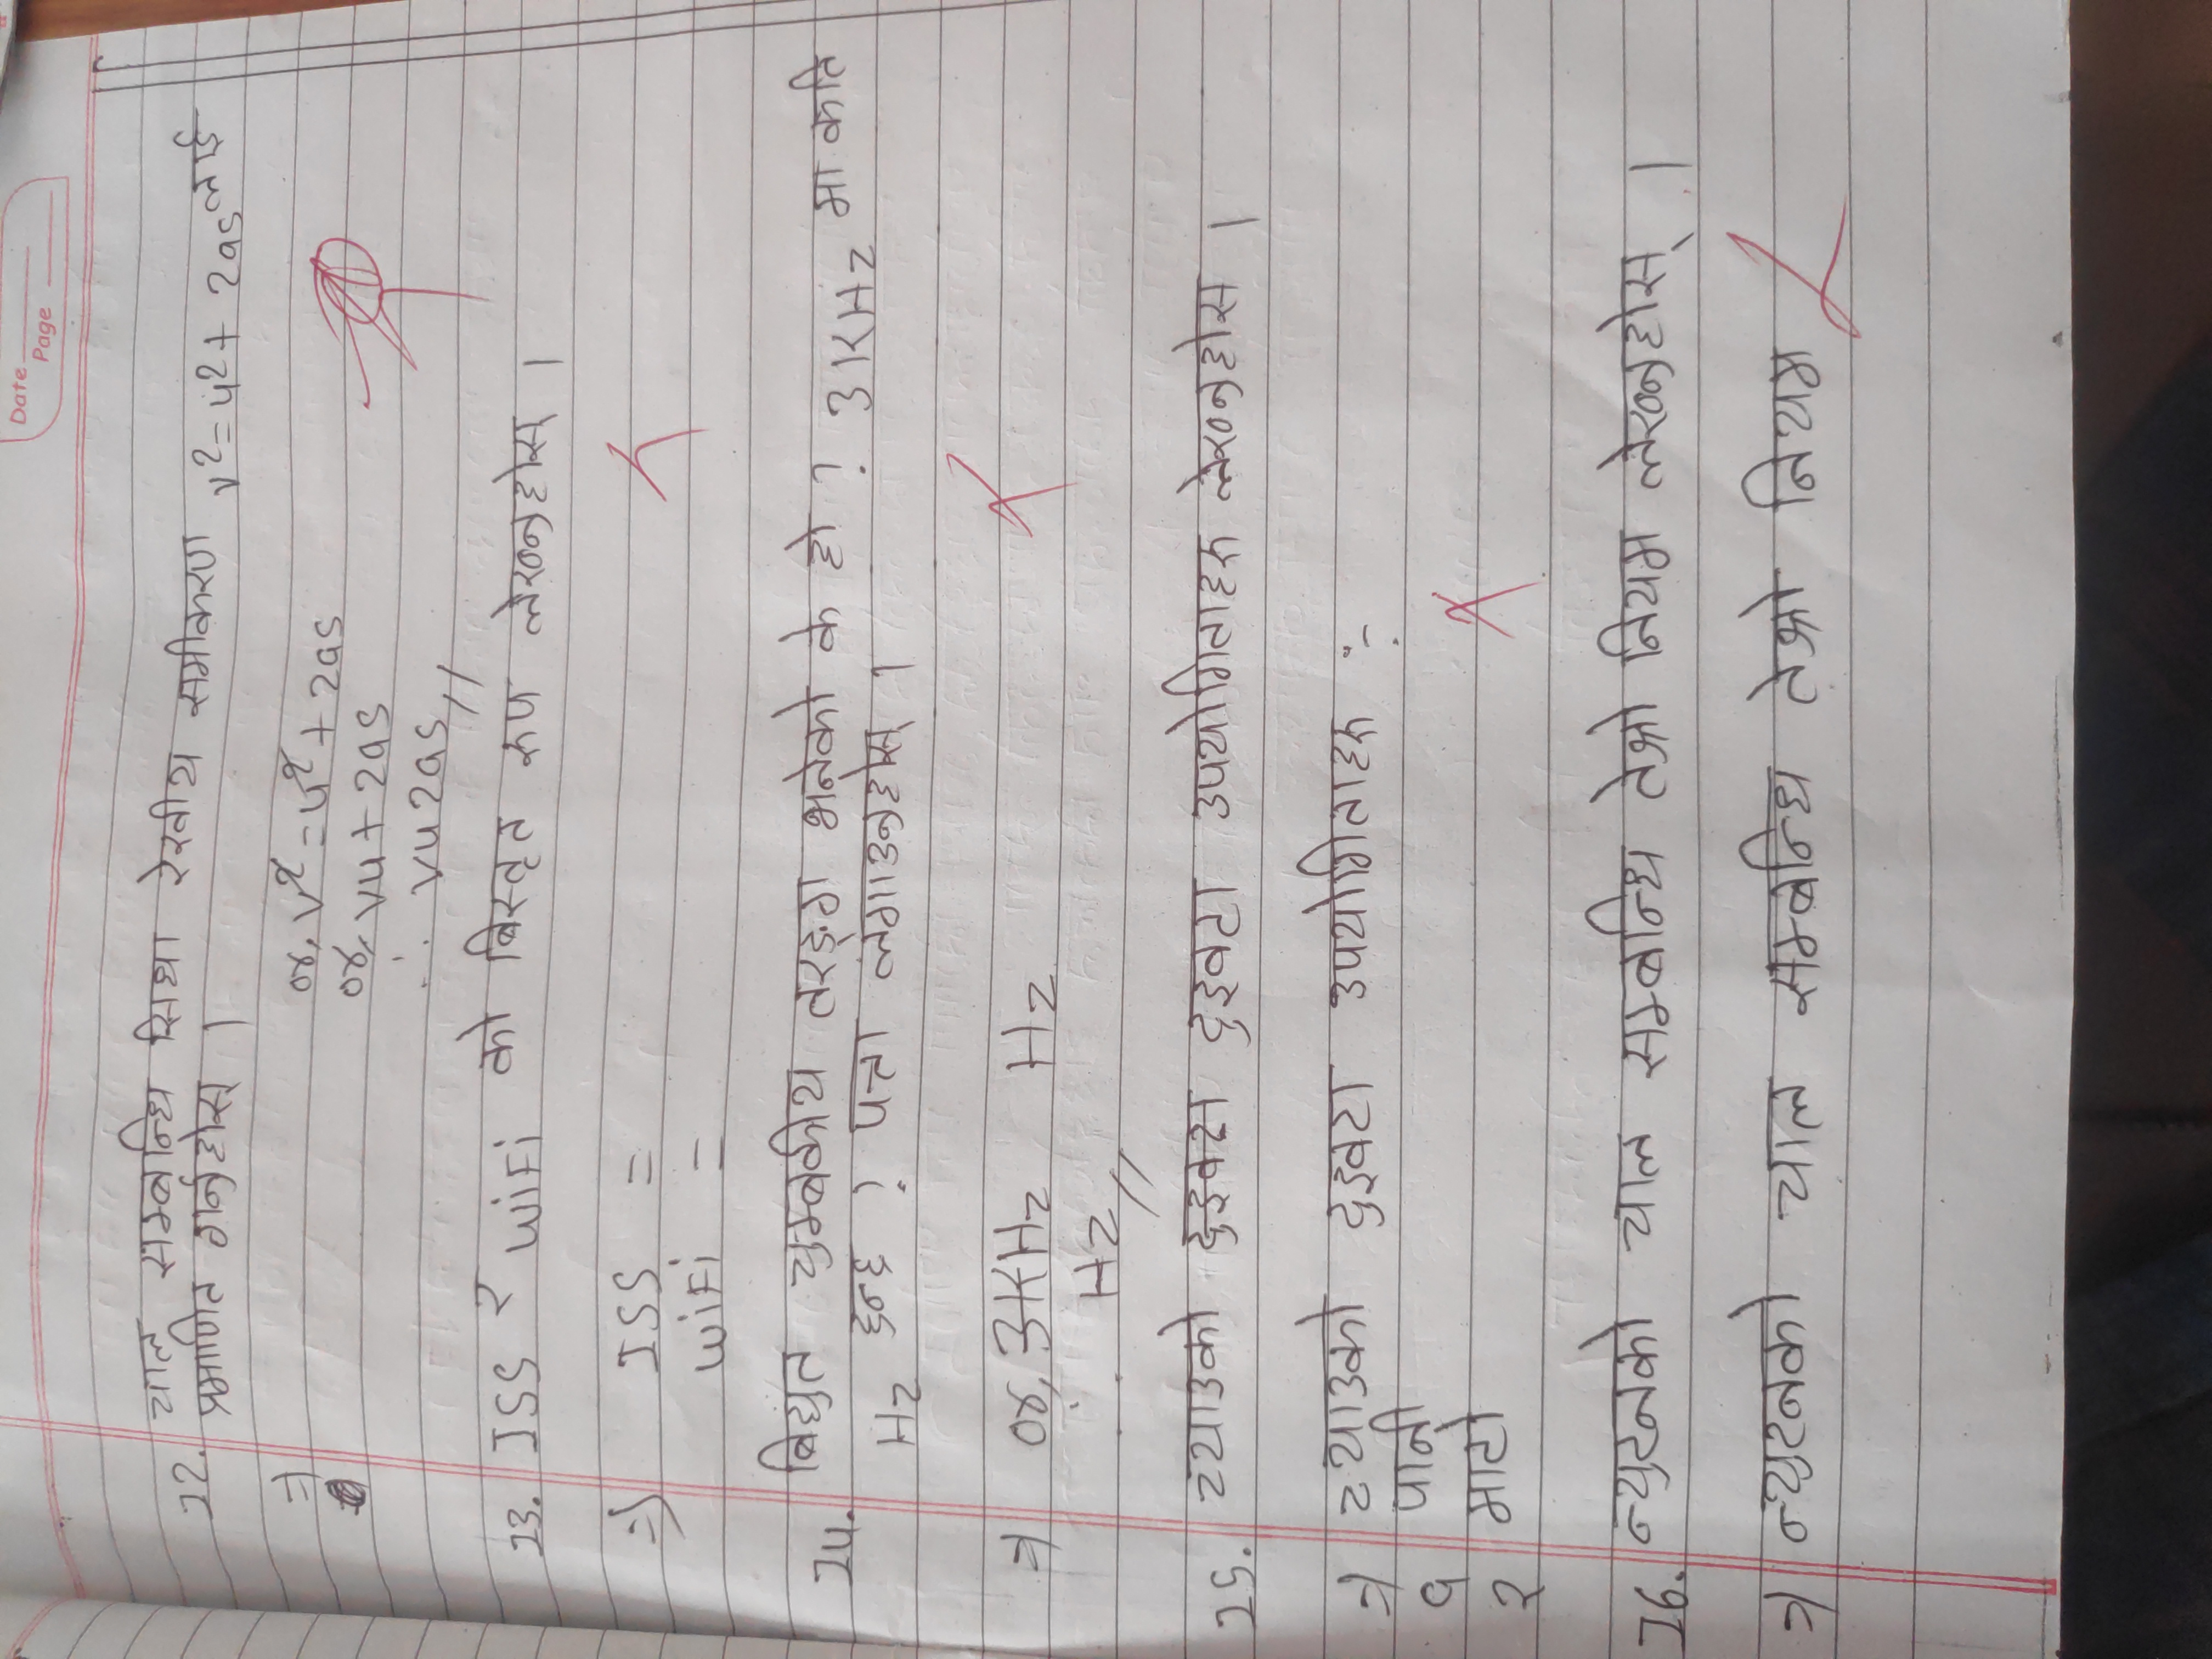 Date
Page
12. चाल सम्बन्धि सिधा रेखीय समीकरण v²=u²+ 2as लाई
प्रमाणित गर्नुहोस् ।
⇒ or, v² = u² + 2as
or, vu + 2as
∴ vu2as//
13. ISS र WiFi को बिस्तृत रुप लेख्नुहोस् ।
⇒ ISS =
WiFi =
14. बिद्युत चुम्बकीय तरङ्ग भनेको के हो ? 3KHz मा कति
Hz हुन्छ ? पत्ता लगाउनुहोस् ।
⇒ or, 3KHz Hz
∴ Hz//
15. च्याउको दुइवटा उपयोगिताहरु लेख्नुहोस ।
⇒ च्याउको दुइवटा उपयोगिताहरु :-
१ पानी
२ माटो
16. न्युटनको चाल सम्बन्धि तेश्रो नियम लेख्नुहोस् ।
⇒ न्युटनको चाल सम्बन्धि तेश्रो नियम